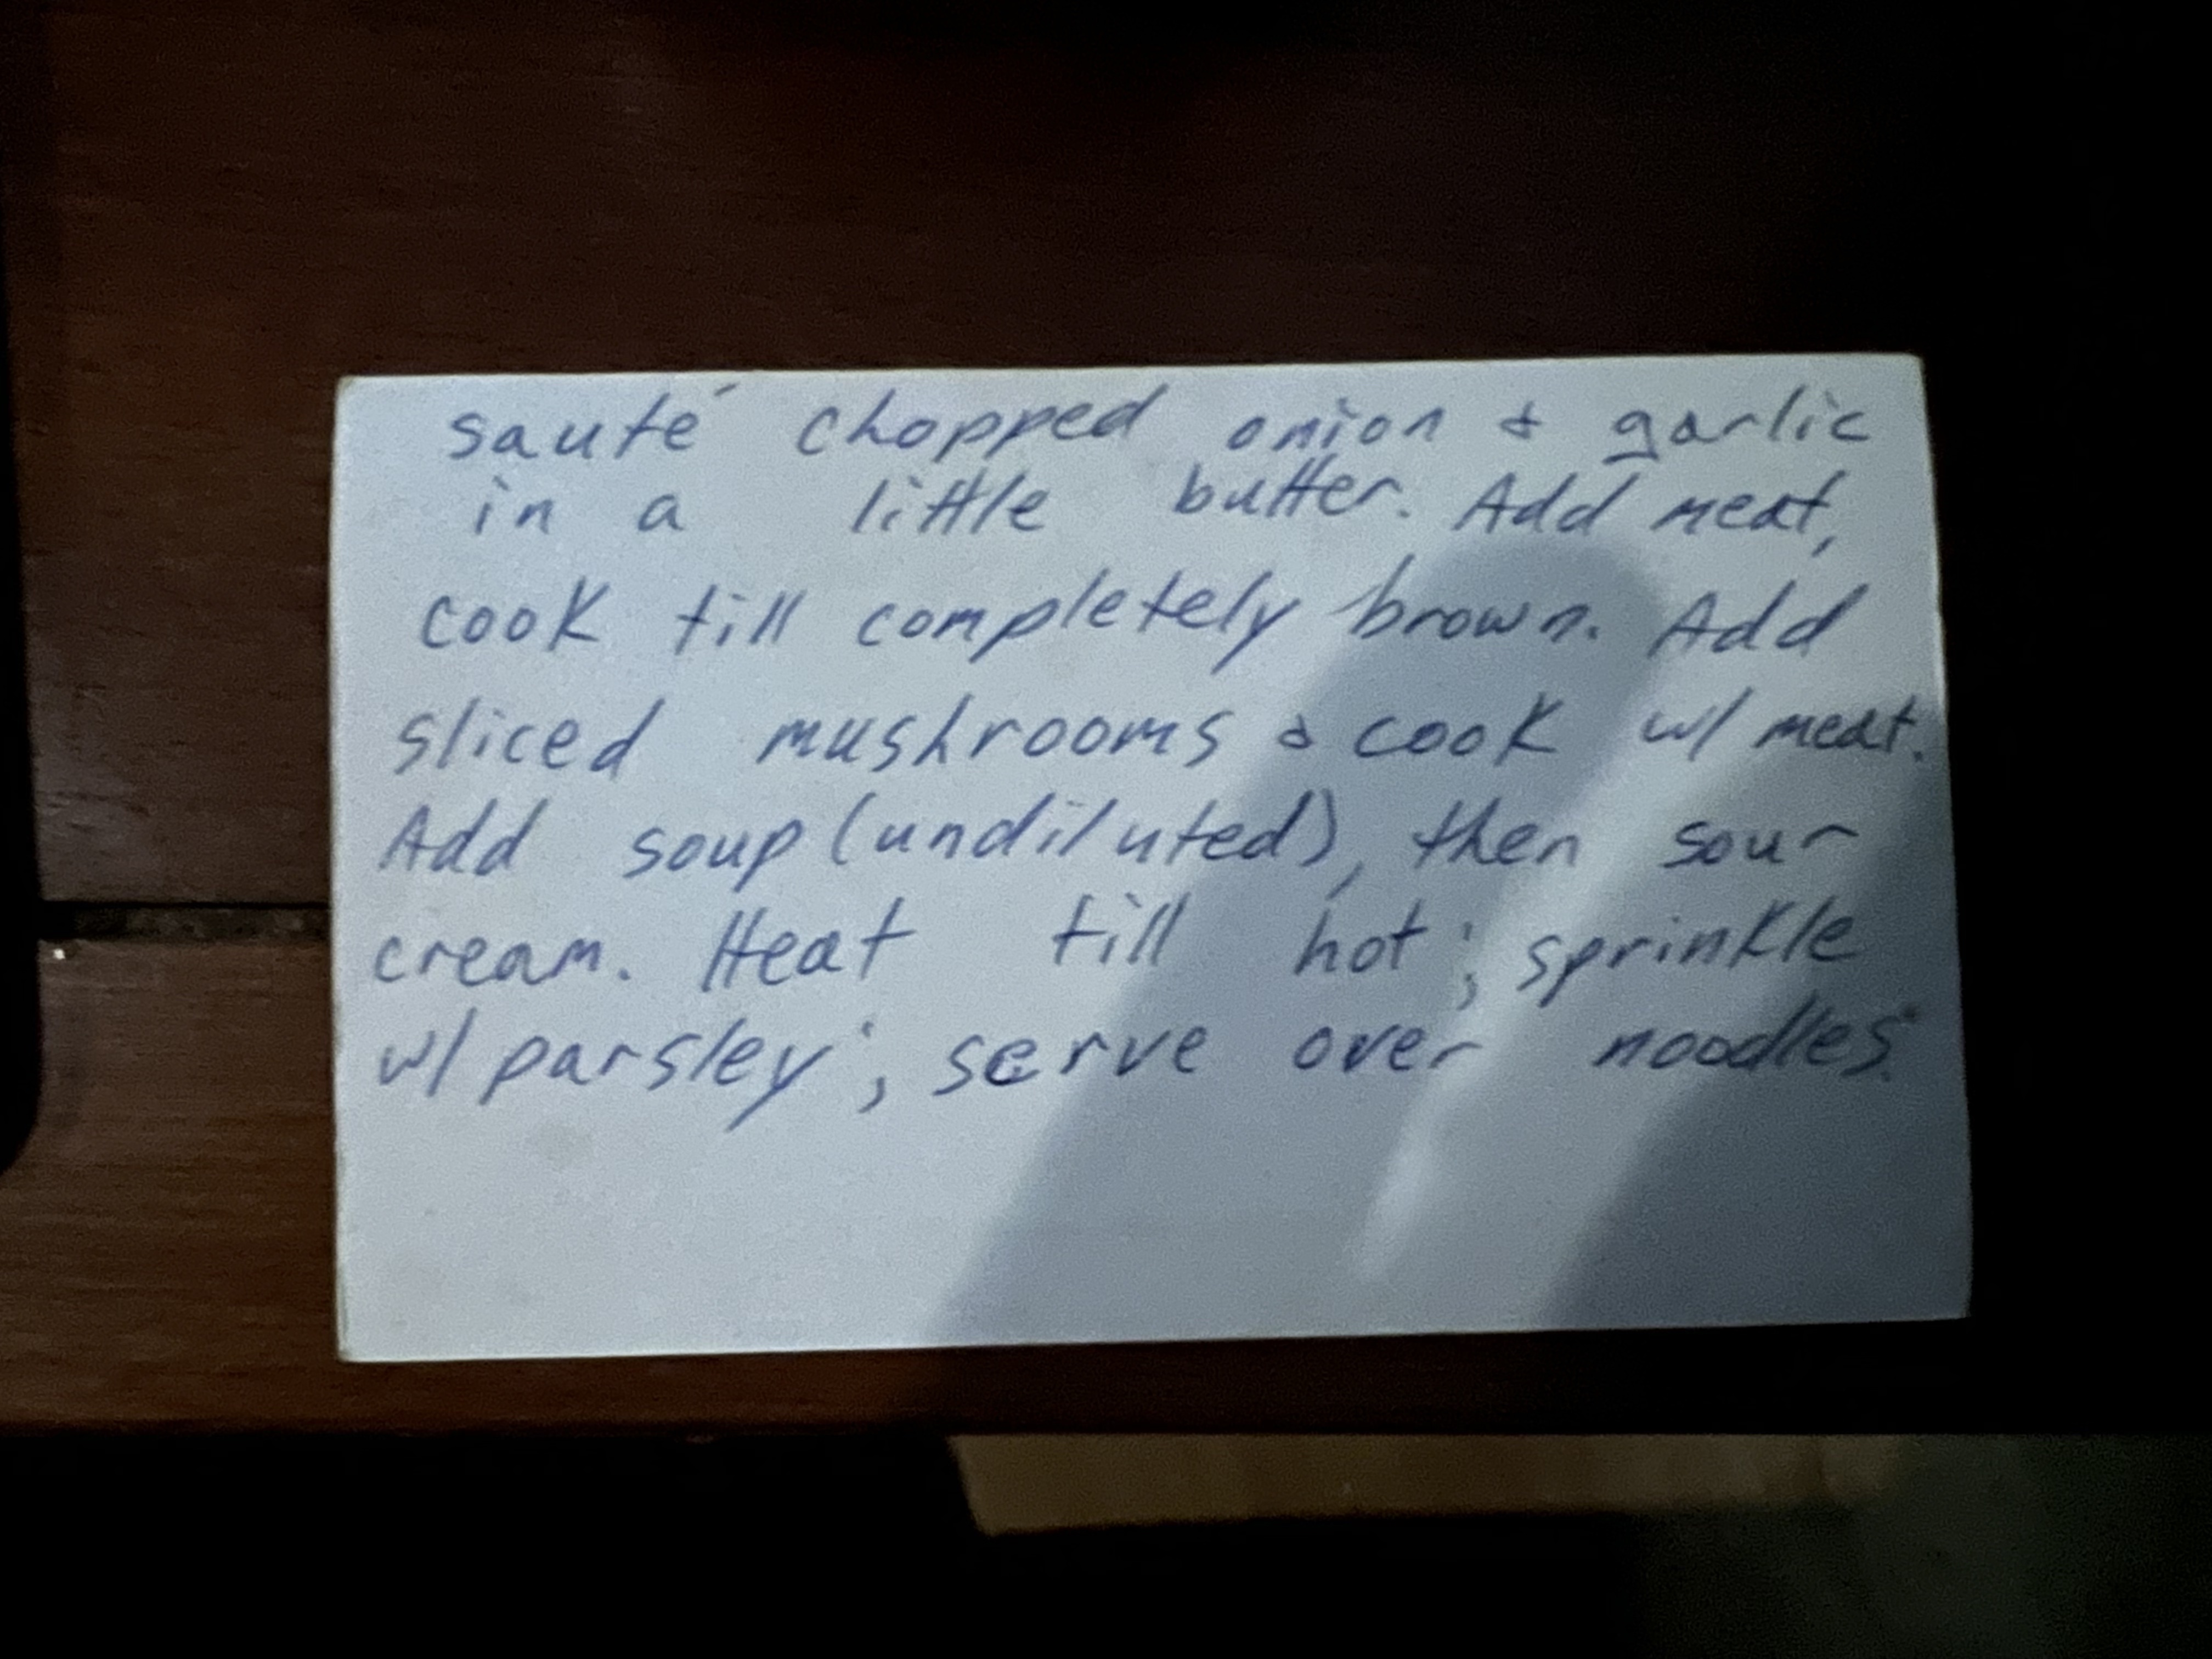 sauté chopped onion & garlic
in a little butter. Add meat,
cook till completely brown. Add
sliced mushrooms & cook w/ meat.
Add soup (undiluted), then sour
cream. Heat till hot; sprinkle
w/ parsley; serve over noodles.